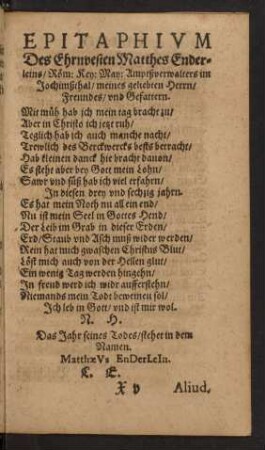 EPITAPHIVM
Des Ehrnvesten Matthes Ender-
leins/ Röm: Key: May: Amptßverwalters im
Jochimßthal/ meines geliebten Herrn/
Freundes/ vnd Gefattern.
Mit müh hab ich mein tag bracht zu/
Aber in Christo ich jetzt ruh/
Teglich hab ich auch manche nacht/
Trewlich des Berckwercks bests betracht/
Hab kleinen danck hie bracht dauon/
Es steht aber bey Gott mein Lohn/
Sawr vnd süß hab ich viel erfahrn/
In diesen drey vnd sechzig jahrn.
Es hat mein Noth nu all ein end/
Nu ist mein Seel in Gottes Hend/
Der Leib im Grab in dieser Erden/
Erd/ Staub vnd Asch muß wider werden/
Rein hat mich gwaschen Christus Blut/
Löst mich auch von der Hellen glut/
Ein wenig Tag werden hingehn/
In freud werd ich widr aufferstehn/
Niemands mein Todt beweinen sol/
Ich leb in Gott/ vnd ist mir wol.
N. H.
Das Jahr seines Todes/ stehet in dem
Namen.
MatthæVs EnDerLeIn.
C. E.
X v Aliud.